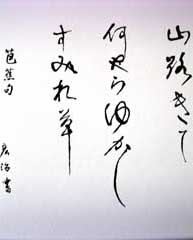 山路きて
何やらゆかし
すみれ草
芭蕉句